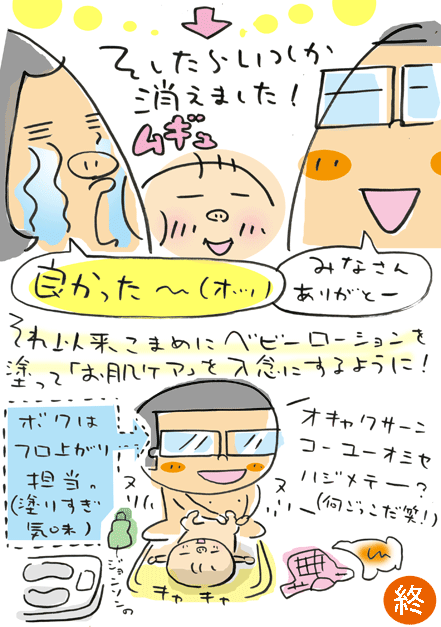 そしたらいつしか
消えました！
ムギュ
良かった〜(オ…)
みなさん
ありがとー
それ以来こまめにベビーローションを
塗って「お肌ケア」を入念にするように！
ボクは
フロ上がり
担当。
(塗りすぎ
気味)
オキャクサーン
コーユーオミセ
ハジメテー？
(何ごっこだ笑！)
ジョンソンの
キャキャ
終